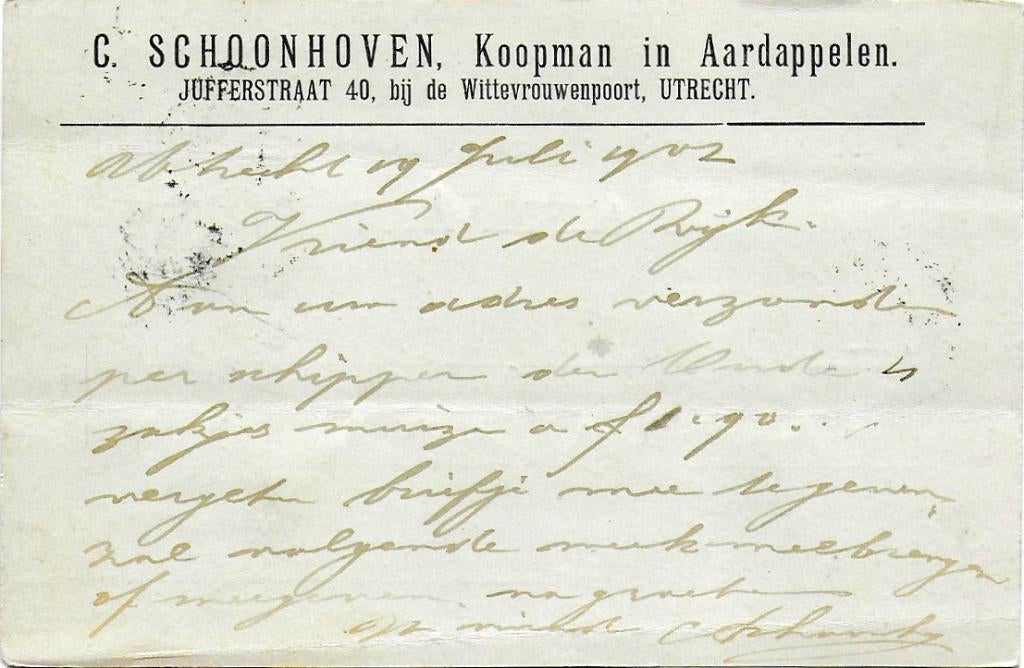 C. SCHOONHOVEN, Koopman in Aardappelen.
JUFFERSTRAAT 40, bij de Wittevrouwenpoort, UTRECHT.
Utrecht 19 Juli 1902
Vriend de Rijk.
Aan uw adres verzonden
per schipper der
zakjes muize a f 1.90.
vergeten briefje mee te geven
zal volgende week meebrengen
of meegeven. na groeten
uw vriend